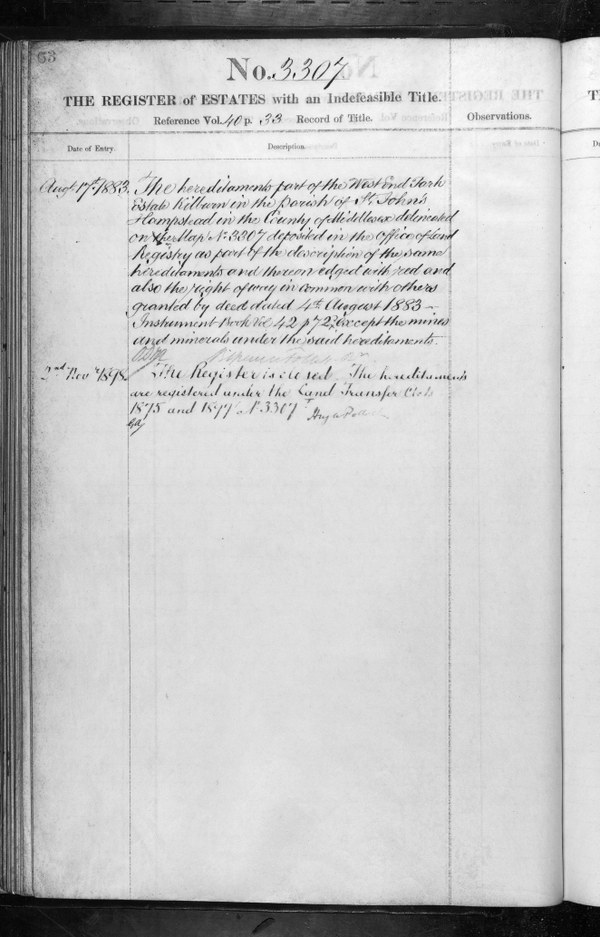 33
No. 3307
THE REGISTER of ESTATES with an Indefeasible Title.
Reference Vol. 40 p. 33 Record of Title.
Observations.
Date of Entry.
Description.
Augt 17th 1883.
The hereditaments part of the West End Park
Estate Kilburn in the Parish of St. John's
Hampstead in the County of Middlesex delineated
on the Map No 3307 deposited in the Office of Land
Registry as part of the description of the same
hereditaments and thereon edged with red and
also the right of way in common with others
granted by deed dated 4th August 1883 -
Instrument Book Vol 42 p 72, except the mines
and minerals under the said hereditaments.
2nd Novr 1898.
The Register is closed. The hereditaments
are registered under the Land Transfer Acts
1875 and 1897 No 3307